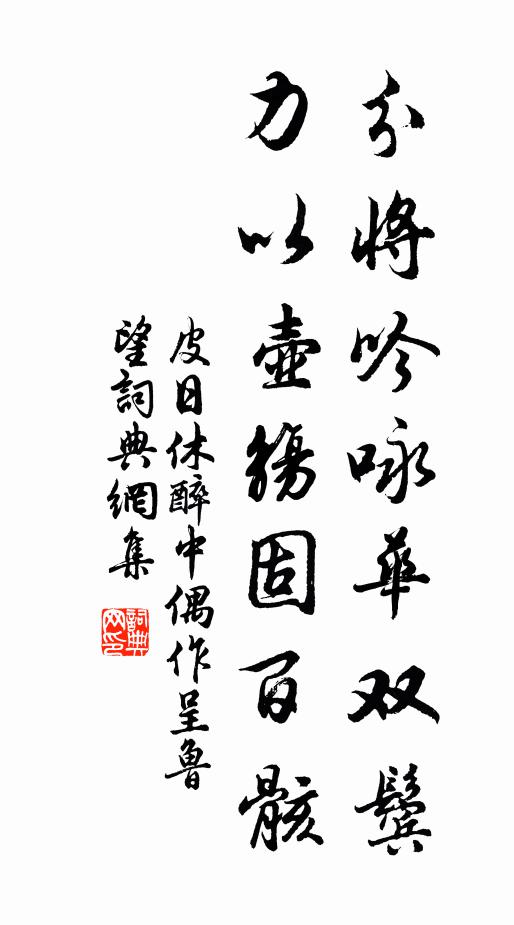 分将吟咏华双鬓
力以壶觞固百骸
皮日休醉中偶作呈鲁
望詞典網集
詞典
网印